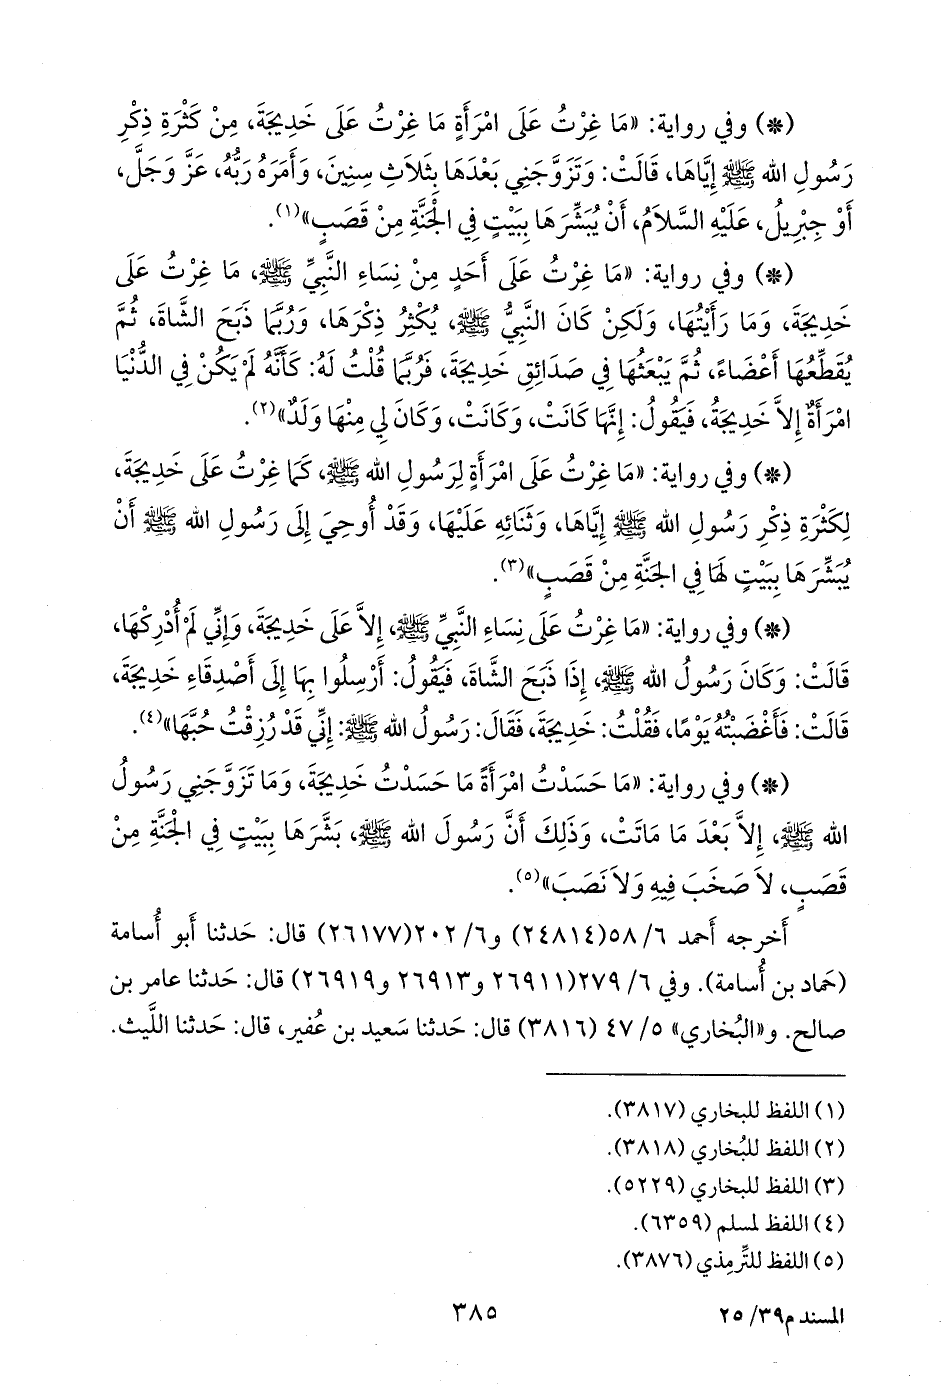 (*) وفي رواية: «مَا غِرْتُ عَلَى امْرَأَةٍ مَا غِرْتُ عَلَى خَدِيجَةَ، مِنْ كَثْرَةِ ذِكْرِ
رَسُولِ الله ﷺ إِيَّاهَا، قَالَتْ: وَتَزَوَّجَنِي بَعْدَهَا بِثَلَاثِ سِنِينَ، وَأَمَرَهُ رَبُّهُ، عَزَّ وَجَلَّ،
أَوْ جِبْرِيلُ، عَلَيْهِ السَّلاَمُ، أَنْ يُبَشِّرَهَا بِبَيْتٍ فِي الْجَنَّةِ مِنْ قَصَبٍ»(١).
(*) وفي رواية: «مَا غِرْتُ عَلَى أَحَدٍ مِنْ نِسَاءِ النَّبِيِّ ﷺ، مَا غِرْتُ عَلَى
خَدِيجَةَ، وَمَا رَأَيْتُهَا، وَلَكِنْ كَانَ النَّبِيُّ ﷺ، يُكْثِرُ ذِكْرَهَا، وَرُبَّمَا ذَبَحَ الشَّاةَ، ثُمَّ
يُقَطِّعُهَا أَعْضَاءً، ثُمَّ يَبْعَثُهَا فِي صَدَائِقِ خَدِيجَةَ، فَرُبَّمَا قُلْتُ لَهُ: كَأَنَّهُ لَمْ يَكُنْ فِي الدُّنْيَا
امْرَأَةٌ إِلاَّ خَدِيجَةُ، فَيَقُولُ: إِنَّهَا كَانَتْ، وَكَانَتْ، وَكَانَ لِي مِنْهَا وَلَدٌ»(٢).
(*) وفي رواية: «مَا غِرْتُ عَلَى امْرَأَةٍ لِرَسُولِ الله ﷺ، كَمَا غِرْتُ عَلَى خَدِيجَةَ،
لِكَثْرَةِ ذِكْرِ رَسُولِ الله ﷺ إِيَّاهَا، وَثَنَائِهِ عَلَيْهَا، وَقَدْ أُوحِيَ إِلَى رَسُولِ الله ﷺ أَنْ
يُبَشِّرَهَا بِبَيْتٍ لَهَا فِي الجَنَّةِ مِنْ قَصَبٍ»(٣).
(*) وفي رواية: «مَا غِرْتُ عَلَى نِسَاءِ النَّبِيِّ ﷺ، إِلاَّ عَلَى خَدِيجَةَ، وَإِنِّي لَمْ أُدْرِكْهَا،
قَالَتْ: وَكَانَ رَسُولُ الله ﷺ، إِذَا ذَبَحَ الشَّاةَ، فَيَقُولُ: أَرْسِلُوا بِهَا إِلَى أَصْدِقَاءِ خَدِيجَةَ،
قَالَتْ: فَأَغْضَبْتُهُ يَوْمًا، فَقُلْتُ: خَدِيجَةَ، فَقَالَ: رَسُولُ الله ﷺ: إِنِّي قَدْ رُزِقْتُ حُبَّهَا»(٤).
(*) وفي رواية: «مَا حَسَدْتُ امْرَأَةً مَا حَسَدْتُ خَدِيجَةَ، وَمَا تَزَوَّجَنِي رَسُولُ
الله ﷺ، إِلاَّ بَعْدَ مَا مَاتَتْ، وَذَلِكَ أَنَّ رَسُولَ الله ﷺ، بَشَّرَهَا بِبَيْتٍ فِي الْجَنَّةِ مِنْ
قَصَبٍ، لاَ صَخَبَ فِيهِ وَلاَ نَصَبَ»(٥).
أَخرجه أَحمد ٦/ ٥٨(٢٤٨١٤) و٦/ ٢٠٢(٢٦١٧٧) قال: حَدثنا أَبو أُسامة
(حَماد بن أُسامة). وفي ٦/ ٢٧٩(٢٦٩١١ و٢٦٩١٣ و٢٦٩١٩) قال: حَدثنا عامر بن
صالح. و«البُخاري» ٥/ ٤٧ (٣٨١٦) قال: حَدثنا سَعيد بن عُفير، قال: حَدثنا اللَّيث.
(١) اللفظ للبخاري (٣٨١٧).
(٢) اللفظ للبُخاري (٣٨١٨).
(٣) اللفظ للبخاري (٥٢٢٩).
(٤) اللفظ لمسلم (٦٣٥٩).
(٥) اللفظ للتِّرمِذي (٣٨٧٦).
المسند م٣٩/ ٢٥
٣٨٥